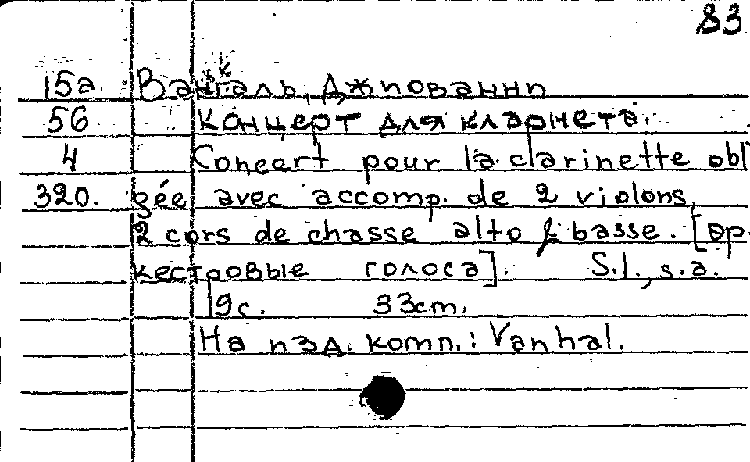 83
15а Вангаль, Джпованнп
56 Концерт для кларнета.
4 Concert pour la clarinette obl
320. gée avec accomp. de 2 violons,
2 cors de chasse alto & basse. [ор-
кестровые голоса]. S.l., s.a.
19с. 33cm.
На пзд. комп.: Vanhal.